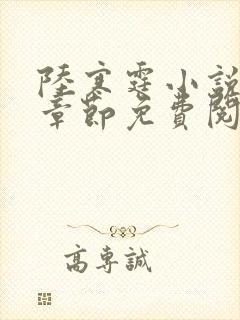 陸寒霆小說
章節免費閱
高專誠